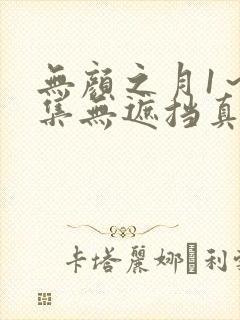 無顔之月1~
集無遮挡真
卡塔麗娜·利